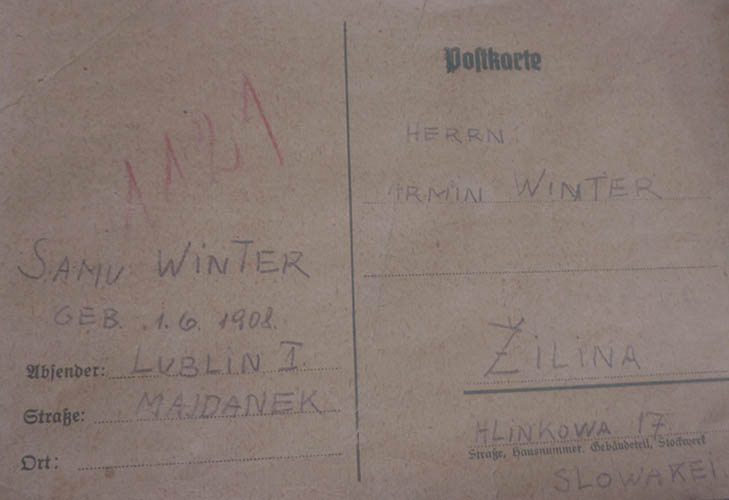 1121
SAMU WINTER
GEB. 1.6. 1908.
Absender: LUBLIN I
Straße: MAJDANEK
Ort:
Postkarte
HERRN
ARMIN WINTER
ŽILINA
HLINKOWA 17
Straße, Hausnummer, Gebäudeteil, Stockwerk
SLOWAKEI.